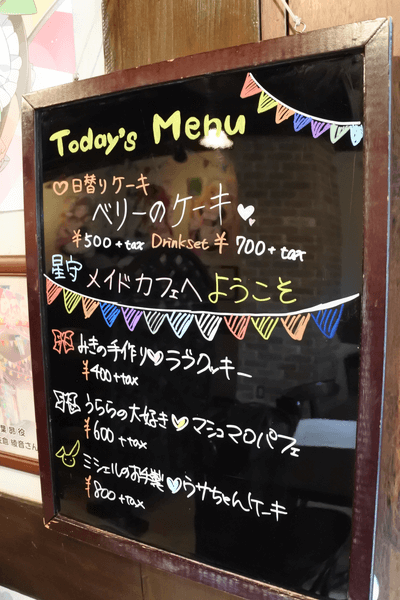 Today's Menu
♡日替りケーキ
ベリーのケーキ♡
¥500+tax Drinkset ¥700+tax
星守 メイドカフェへ ようこそ
みきの手作り♡ラブクッキー
¥400+tax
うららの大好き♡マシュマロパフェ
¥600+tax
ミシェルのお手製♡ウサちゃんケーキ
¥800+tax